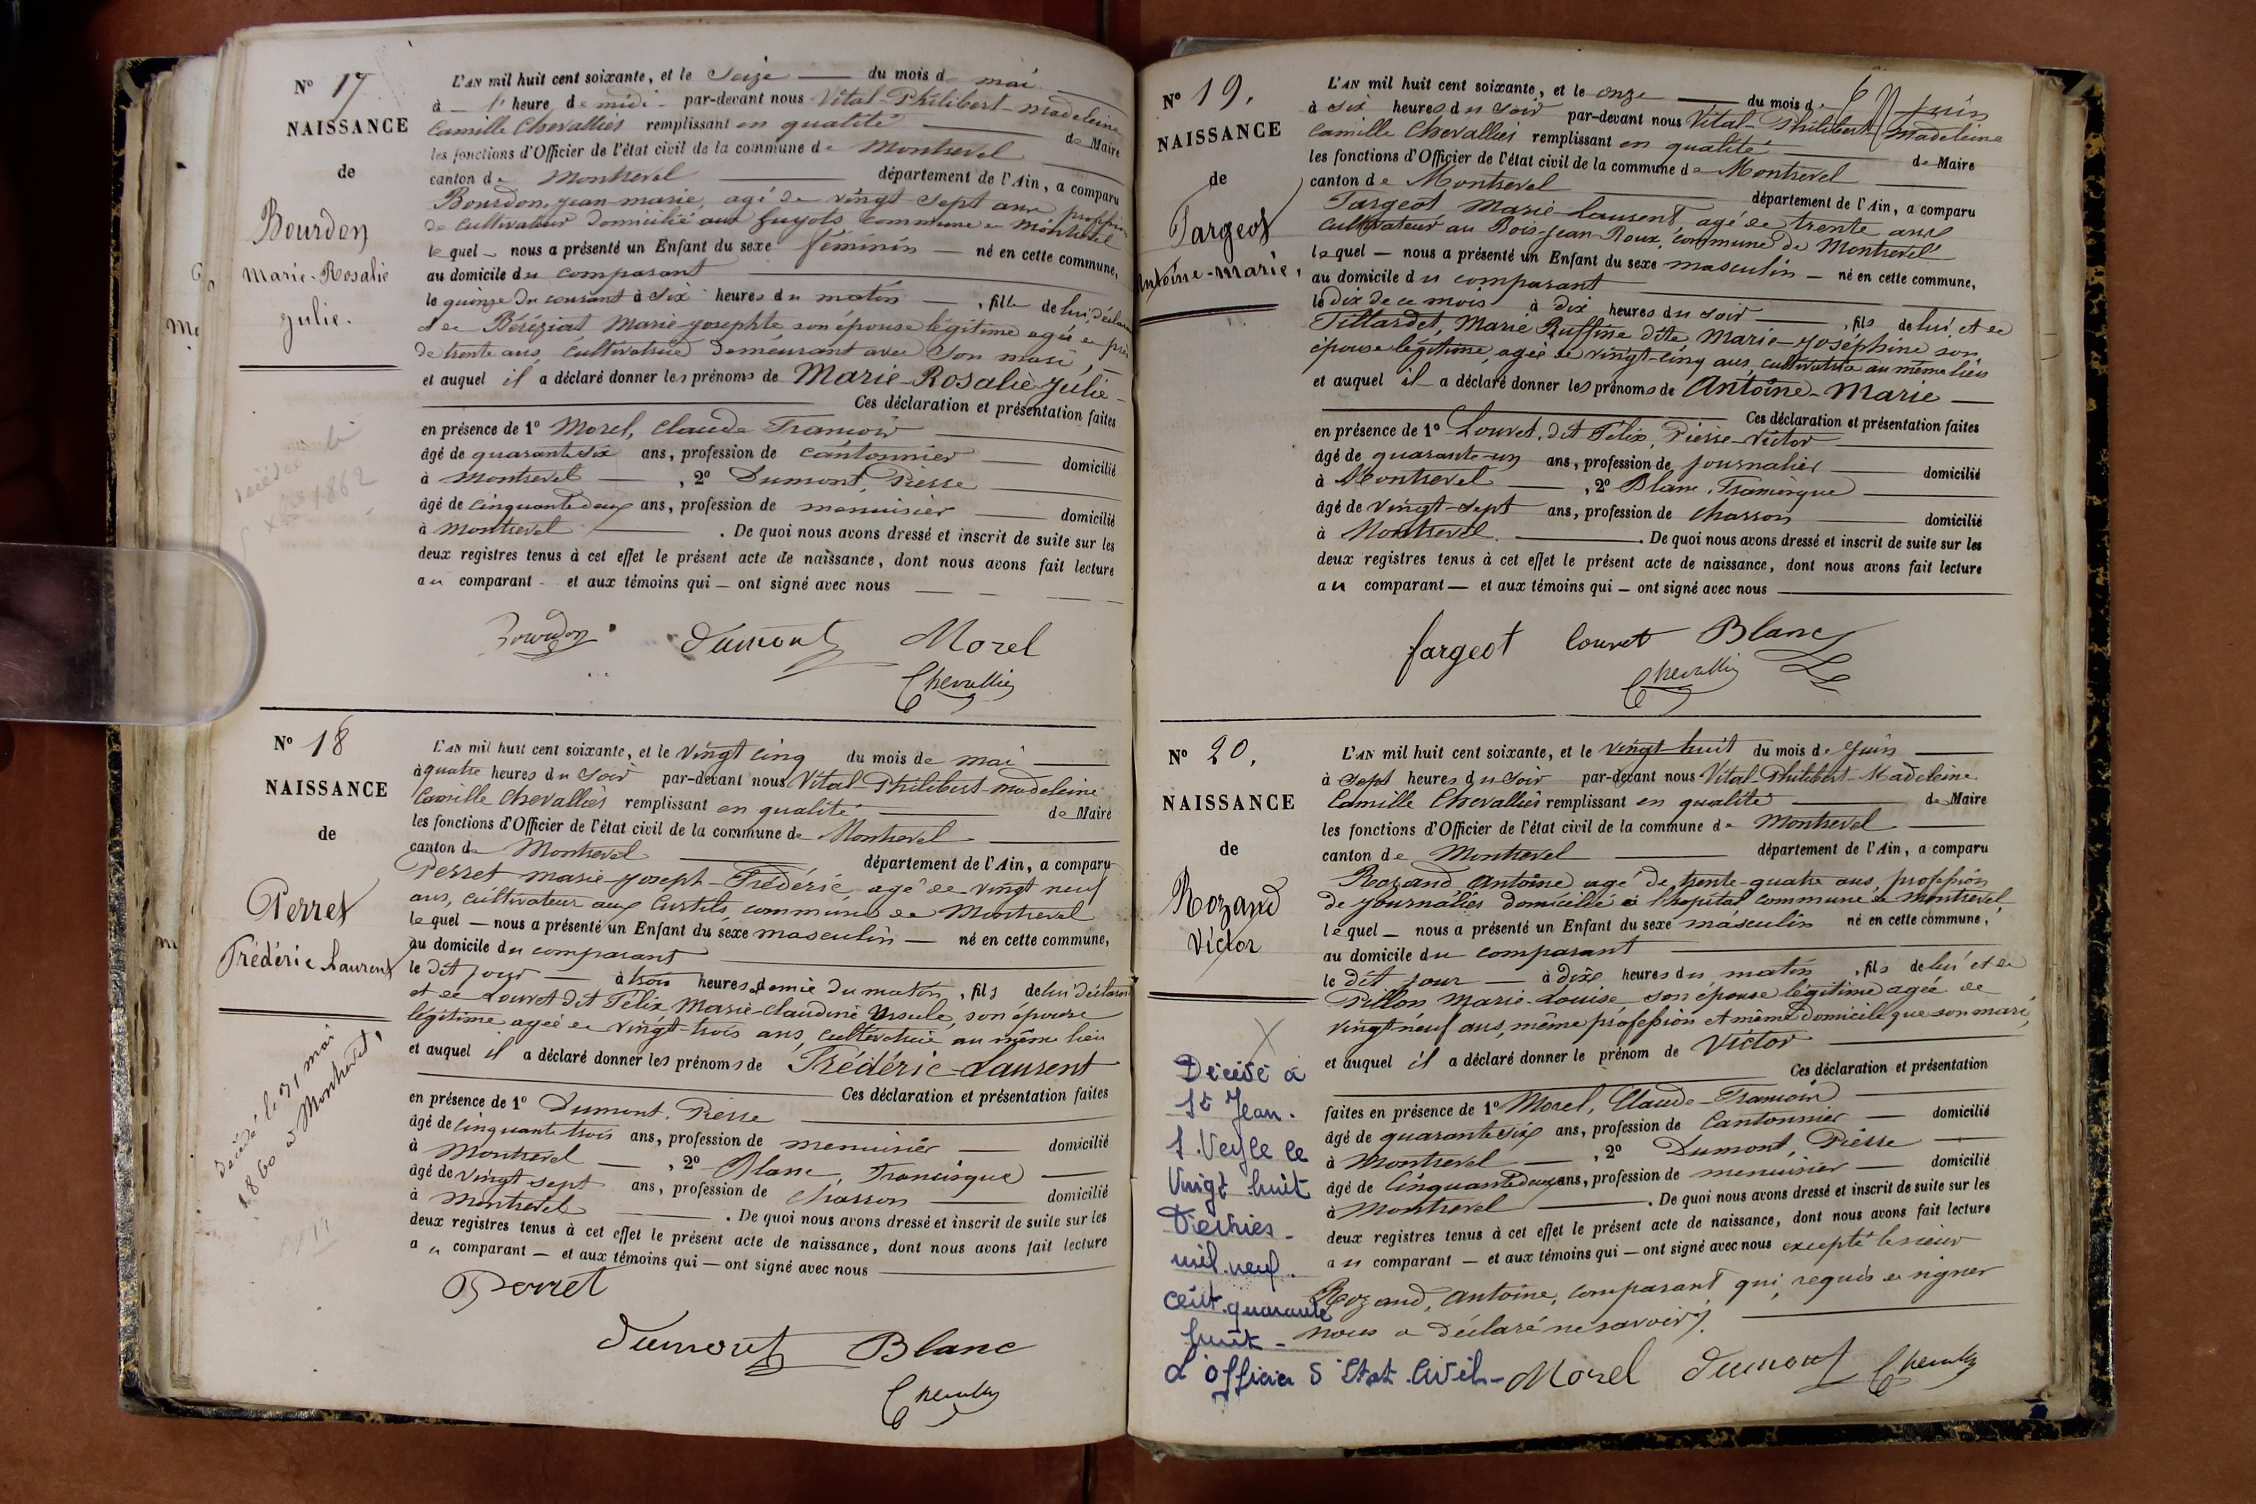 N° 17
NAISSANCE
de
Bourdon
Marie-Rosalie
Julie.
L'AN mil huit cent soixante, et le Seize du mois de mai
à l'heure de midi par-devant nous Vital-Philibert-Madeleine
Camille Chevallier remplissant en qualité de Maire
les fonctions d'Officier de l'état civil de la commune de Montrevel
canton de Montrevel département de l'Ain, a comparu
Bourdon, Jean-marie, agé de vingt sept ans, profession
de cultivateur domicilié aux Guyots commune de Montrevel
lequel nous a présenté un Enfant du sexe féminin né en cette commune,
au domicile du comparant
le quinze du courant à six heures du matin, fille de lui, déclarant
et de Béréziat Marie-Josephte son épouse légitime agée de près
de trente ans, cultivatrice demeurant avec son mari,
et auquel il a déclaré donner les prénoms de Marie-Rosalie-Julie
Ces déclaration et présentation faites
en présence de 1° Morel, Claude François
âgé de quarante six ans, profession de cantonnier domicilié
à Montrevel, 2° Dumont, Pierre
âgé de cinquante deux ans, profession de menuisier domicilié
à Montrevel. De quoi nous avons dressé et inscrit de suite sur les
deux registres tenus à cet effet le présent acte de naissance, dont nous avons fait lecture
au comparant et aux témoins qui ont signé avec nous
décédé
1862
Bourdon Dumont Morel
Chevallier
N° 18
NAISSANCE
de
Perret
Frédéric Laurent
L'AN mil huit cent soixante, et le vingt cinq du mois de mai
à quatre heures du soir par-devant nous Vital-Philibert-Madeleine
Camille Chevallier remplissant en qualité de Maire
les fonctions d'Officier de l'état civil de la commune de Montrevel
canton de Montrevel département de l'Ain, a comparu
Perret Marie-Joseph-Frédéric agé de vingt neuf
ans, cultivateur aux Curtils, commune de Montrevel
lequel nous a présenté un Enfant du sexe masculin né en cette commune,
au domicile du comparant
le dit jour à trois heures et demie du matin, fils de lui déclarant
et de Louvet dit Félix, Marie-Claudine Ursule, son épouse
légitime agée de vingt-trois ans, cultivatrice au même lieu
et auquel il a déclaré donner les prénoms de Frédéric-Laurent
Ces déclaration et présentation faites
en présence de 1° Dumont, Pierre
âgé de cinquante trois ans, profession de menuisier domicilié
à Montrevel, 2° Blanc, Francisque
âgé de vingt sept ans, profession de charron domicilié
à Montrevel. De quoi nous avons dressé et inscrit de suite sur les
deux registres tenus à cet effet le présent acte de naissance, dont nous avons fait lecture
au comparant et aux témoins qui ont signé avec nous
décédé le 31 mai
1860 à Montrevel,
Perret
Dumont Blanc
Chevallier
N° 19.
NAISSANCE
de
Fargeot
Antoine-Marie,
L'AN mil huit cent soixante, et le onze du mois de Juin
à six heures du soir par-devant nous Vital-Philibert-Madeleine
Camille Chevallier remplissant en qualité de Maire
les fonctions d'Officier de l'état civil de la commune de Montrevel
canton de Montrevel département de l'Ain, a comparu
Fargeot Marie-Laurent, agé de trente ans
cultivateur au Bois-Jean-Roux, commune de Montrevel
lequel nous a présenté un Enfant du sexe masculin né en cette commune,
au domicile du comparant
le dix de ce mois à dix heures du soir, fils de lui et de
Tillardet, Marie Ruffine dite Marie-Joséphine son
épouse légitime, agée de vingt-cinq ans, cultivatrice au même lieu
et auquel il a déclaré donner les prénoms de Antoine-Marie
Ces déclaration et présentation faites
en présence de 1° Louvet, dit Félix, Pierre-Victor
âgé de quarante-un ans, profession de journalier domicilié
à Montrevel, 2° Blanc, Francisque
âgé de vingt-sept ans, profession de charron domicilié
à Montrevel. De quoi nous avons dressé et inscrit de suite sur les
deux registres tenus à cet effet le présent acte de naissance, dont nous avons fait lecture
au comparant et aux témoins qui ont signé avec nous
fargeot Louvet Blanc
Chevallier
N° 20.
NAISSANCE
de
Rozand
Victor
L'AN mil huit cent soixante, et le vingt huit du mois de Juin
à sept heures du soir par-devant nous Vital-Philibert-Madeleine
Camille Chevallier remplissant en qualité de Maire
les fonctions d'Officier de l'état civil de la commune de Montrevel
canton de Montrevel département de l'Ain, a comparu
Rozand Antoine agé de trente-quatre ans, profession
de journalier domicilié à l'hopital commune de Montrevel
lequel nous a présenté un Enfant du sexe masculin né en cette commune,
au domicile du comparant
le dit jour à dix heures du matin, fils de lui et de
Pillon Marie-Louise son épouse légitime agée de
vingt-neuf ans, même profession et même domicile que son mari,
et auquel il a déclaré donner le prénom de Victor
Ces déclaration et présentation
faites en présence de 1° Morel, Claude-François
âgé de quarante six ans, profession de Cantonnier domicilié
à Montrevel, 2° Dumont, Pierre
âgé de cinquante deux ans, profession de menuisier domicilié
à Montrevel. De quoi nous avons dressé et inscrit de suite sur les
deux registres tenus à cet effet le présent acte de naissance, dont nous avons fait lecture
au comparant et aux témoins qui ont signé avec nous excepté le sieur
Rozand, Antoine, comparant qui, requis de signer
nous a déclaré ne savoir.
Décédé à
St Jean.
s. Veyle le
Vingt huit
mil neuf.
cent quarante
huit
L'officier d'Etat Civil
Morel Dumont Chevallier